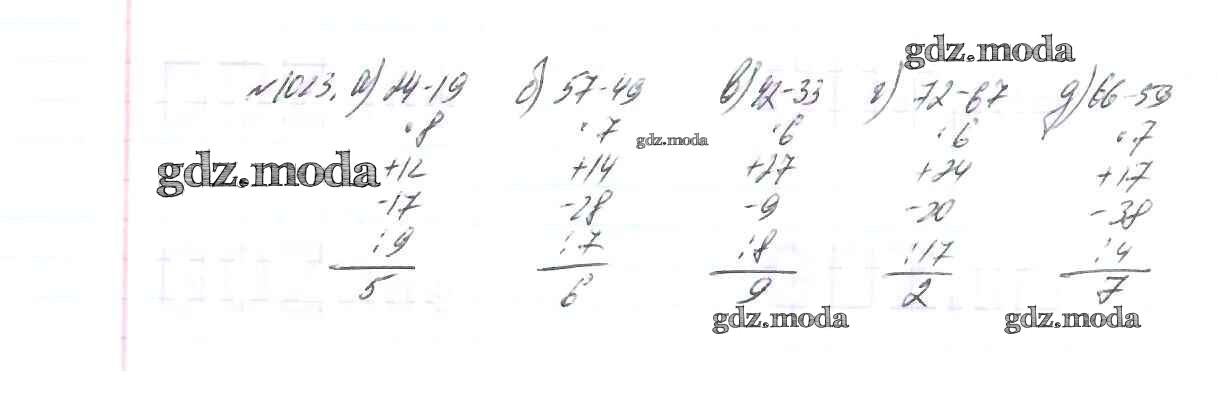 gdz.moda
№1013. а) 24-19 б) 57-49 в) 42-33 г) 72-67 д) 66-59
·8 ·7 ·6 ·6 ·7
gdz.moda
gdz.moda +12 +14 +27 +24 +17
-17 -28 -9 -20 -38
:9 :7 :8 :17 :4
5 6 9 2 7
gdz.moda gdz.moda